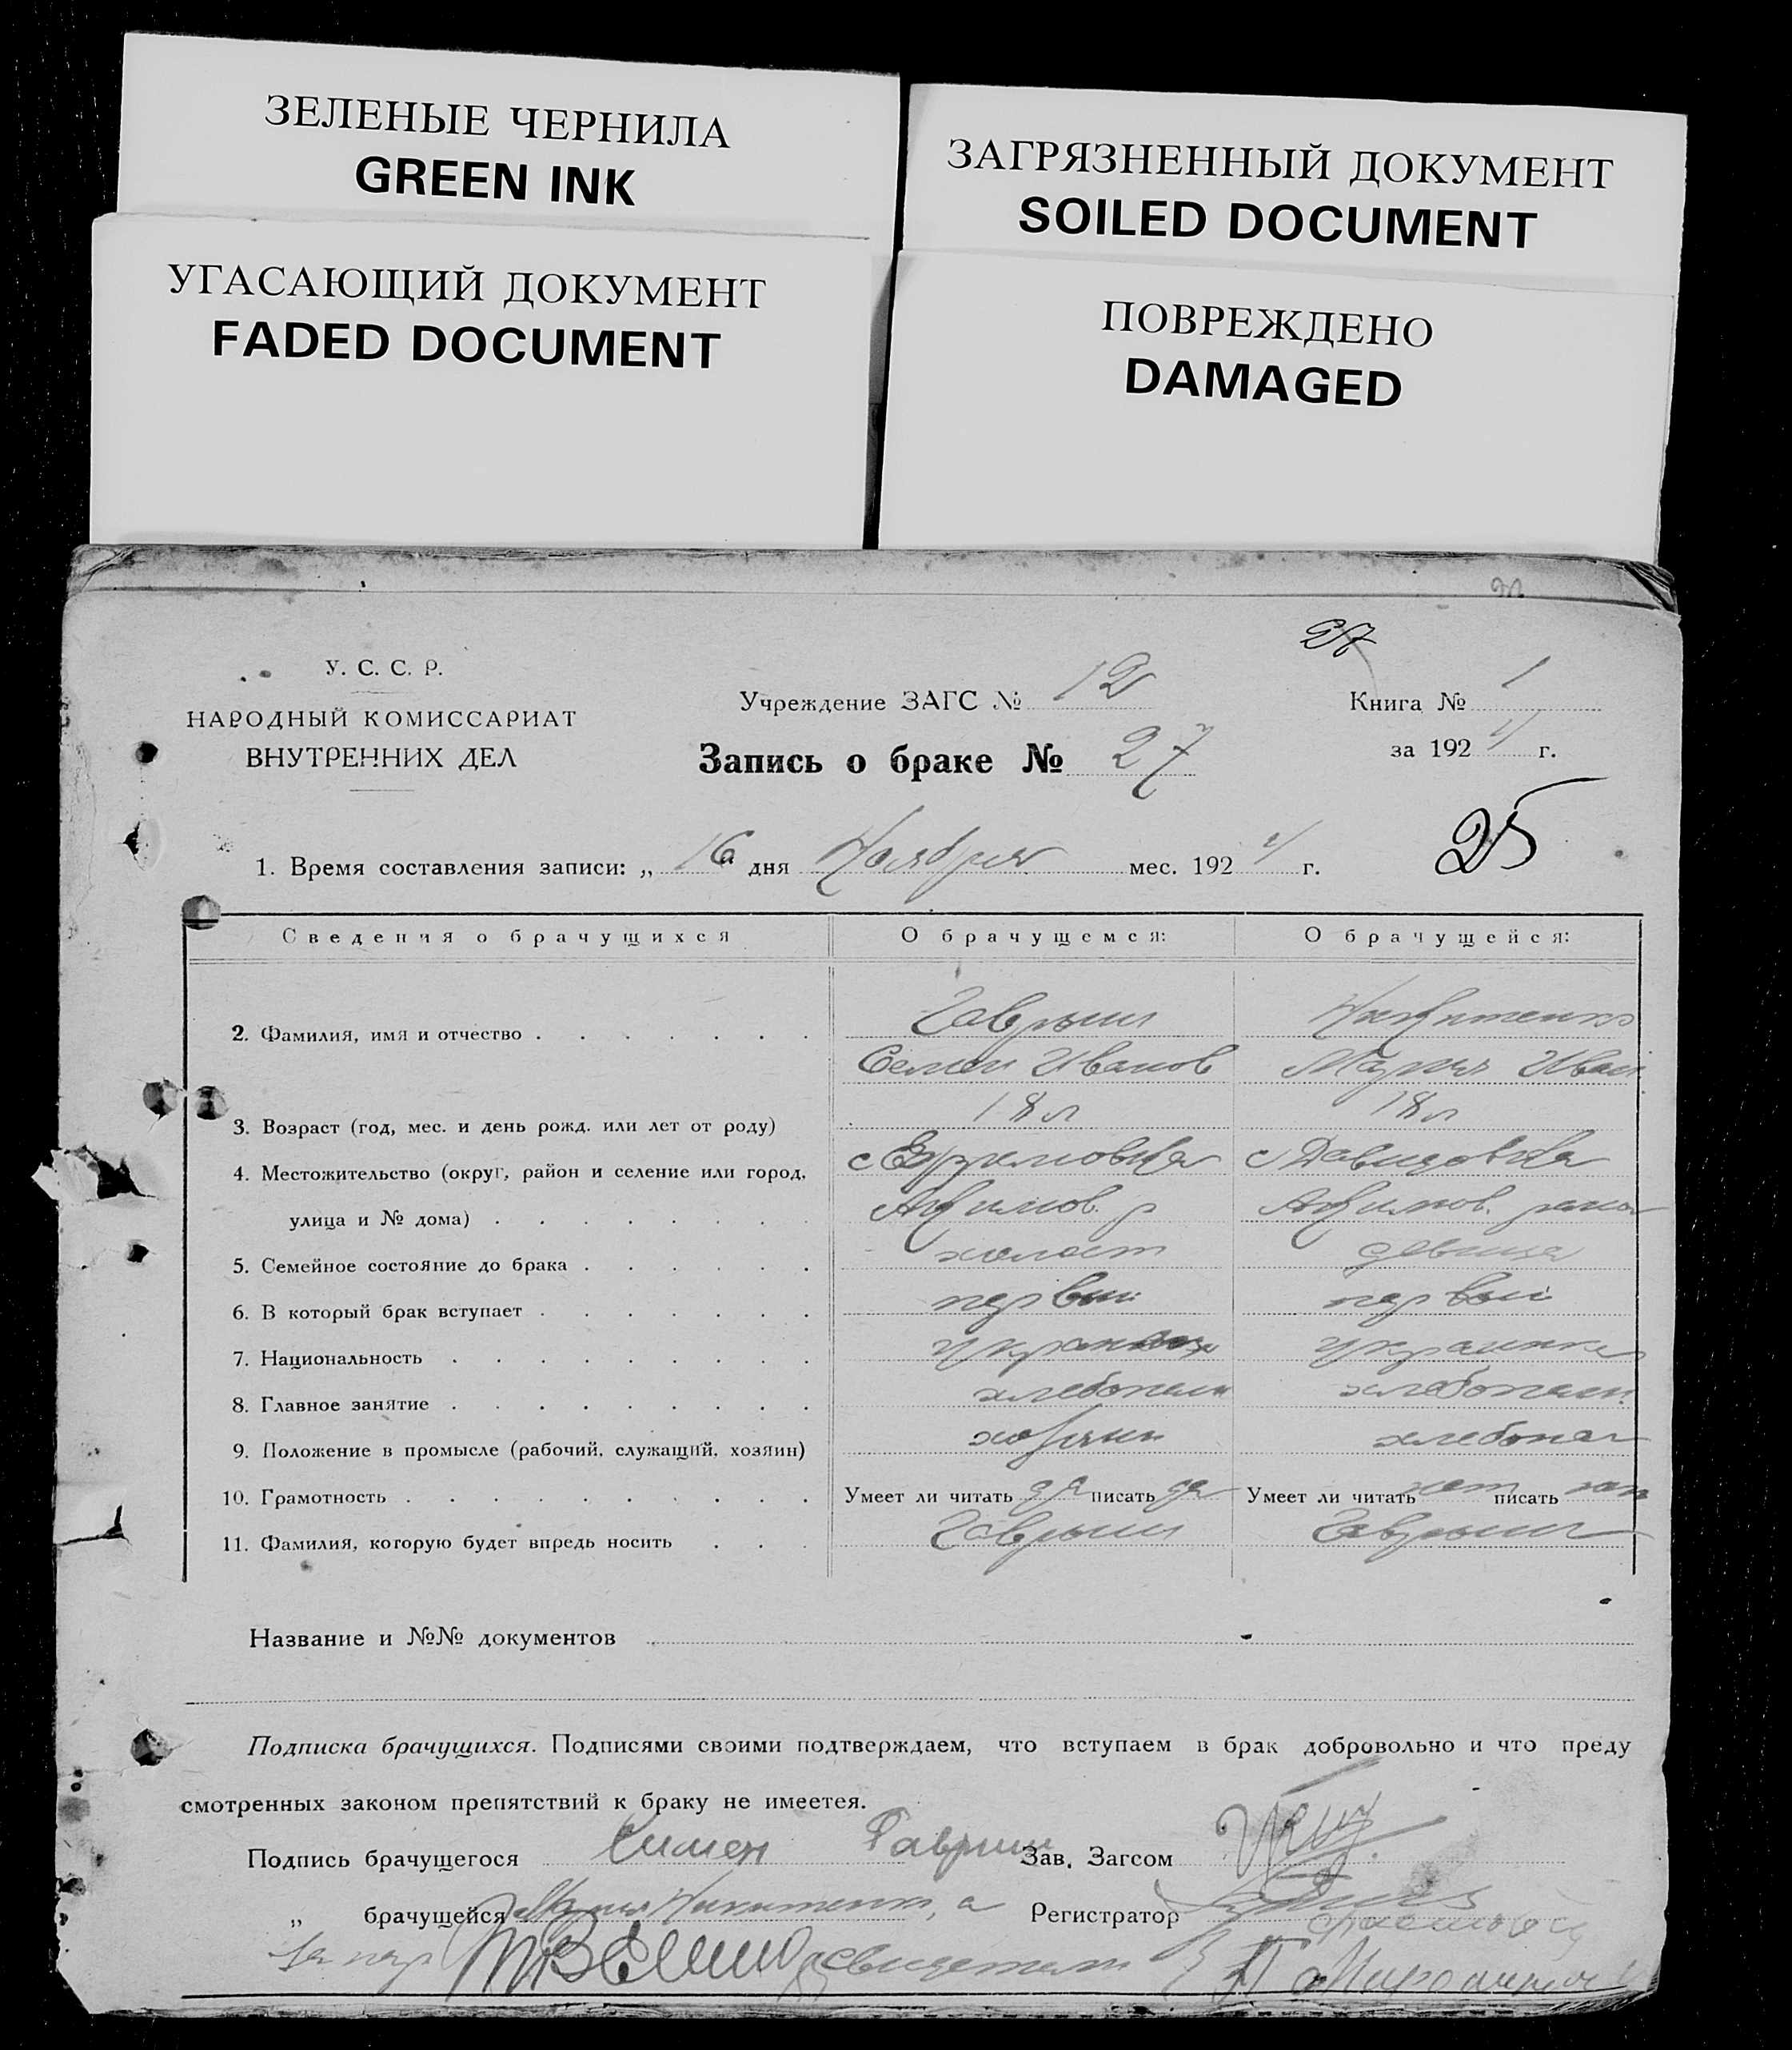 ЗЕЛЕНЫЕ ЧЕРНИЛА
GREEN INK
ЗАГРЯЗНЕННЫЙ ДОКУМЕНТ
SOILED DOCUMENT
УГАСАЮЩИЙ ДОКУМЕНТ
FADED DOCUMENT
ПОВРЕЖДЕНО
DAMAGED
27
У. С. С. Р.
НАРОДНЫЙ КОМИССАРИАТ
ВНУТРЕННИХ ДЕЛ
Учреждение ЗАГС № 12
Книга № 1
Запись о браке № 27
за 1924 г.
25
1. Время составления записи: „ 16 " дня Ноября мес. 1924 г.
Сведения о брачущихся О брачущемся: О брачущейся:
2. Фамилия, имя и отчество Гаврыш Никитенко
Семен Иванов Мария Иван
3. Возраст (год, мес. и день рожд. или лет от роду) 18 л 18 л
4. Местожительство (округ, район и селение или город, с Ефремовка с Давидовка
улица и № дома) Акимов. р Акимов. район
5. Семейное состояние до брака холост девица
6. В который брак вступает первый первый
7. Национальность украинец украинка
8. Главное занятие хлебопаш хлебопаш
9. Положение в промысле (рабочий, служащий, хозяин) хозяин хлебопаш
10. Грамотность Умеет ли читать да писать да Умеет ли читать нет писать нет
11. Фамилия, которую будет впредь носить Гаврыш Гаврыш
Название и №№ документов
Подписка брачущихся. Подписями своими подтверждаем, что вступаем в брак добровольно и что преду
смотренных законом препятствий к браку не имеетея.
Подпись брачущегося Симен Гавриш Зав. Загсом
„ брачущейся Мария Никитенко, а Регистратор
За нер свидетели